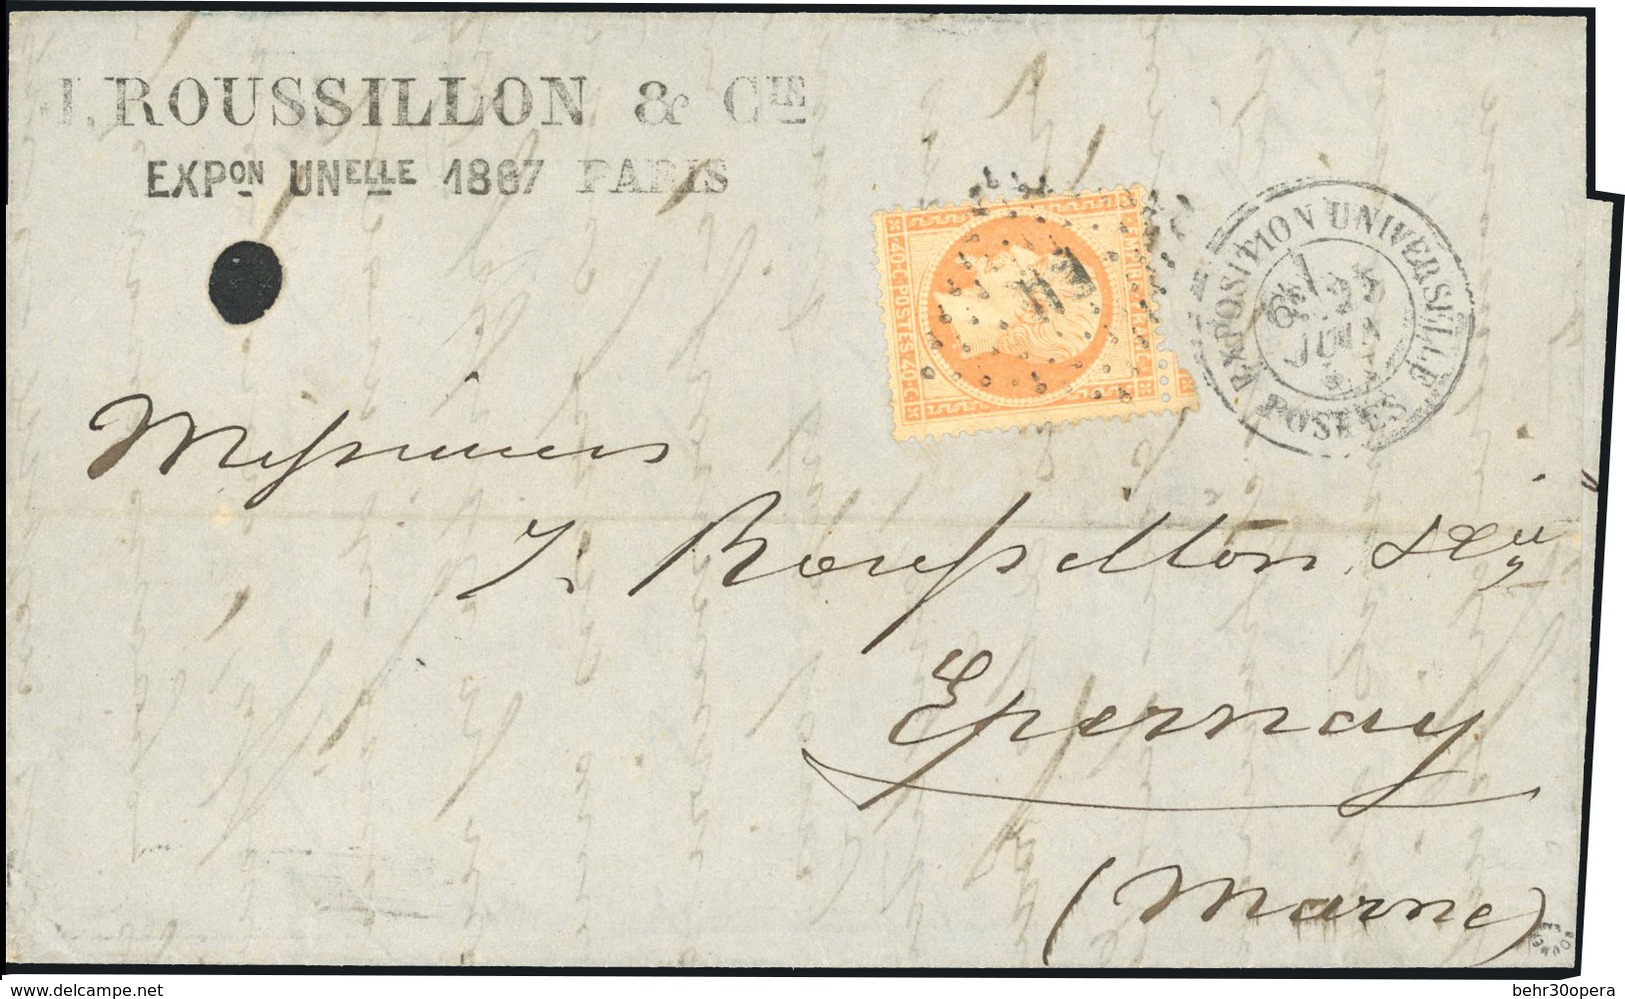 J. ROUSSILLON & CIE
EXPON UNELLE 1867 PARIS
EMP IRE FRANC
40·C·POSTES·40·C
EXPOSITION UNIVERSELLE
25
JUIN
67
POSTES
Messieurs
J. Roussillon & Cie
Epernay
(Marne)
delcampe.net
behr30opera